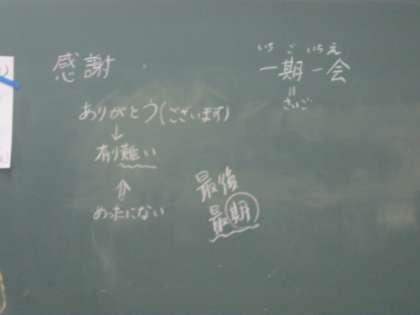 感謝
ありがとう(ございます)
↓
有り難い
⇑
めったにない
いちごいちえ
一期一会
॥
さいご
最後
最期